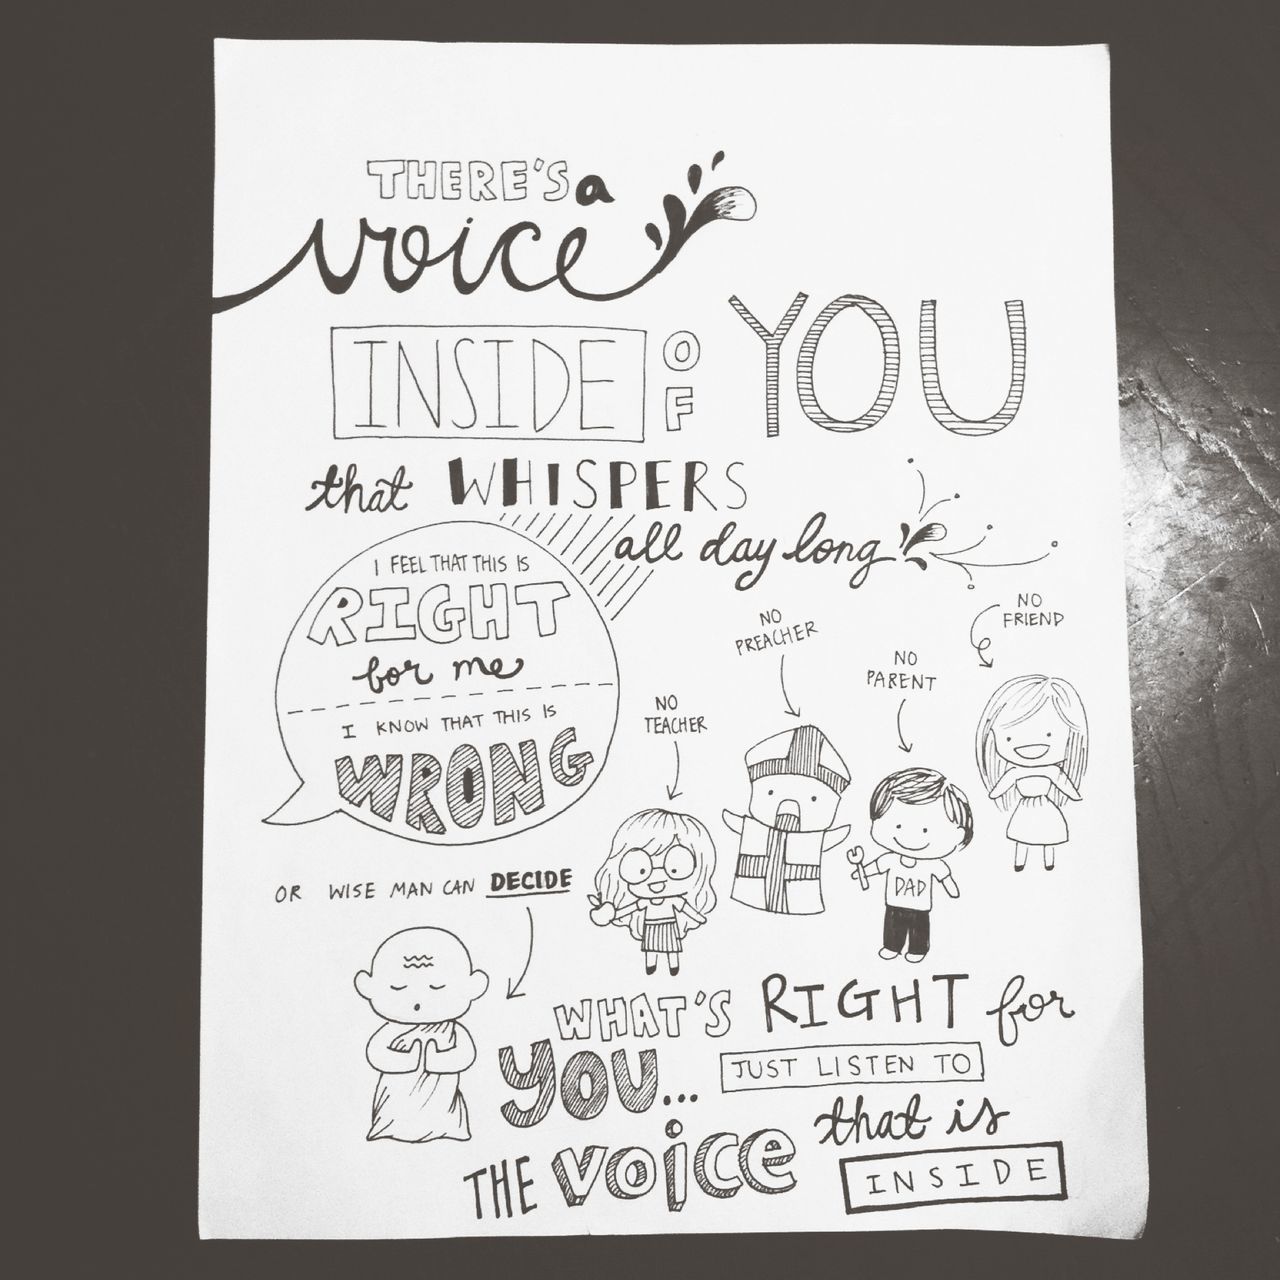 THERE'S a
voice
INSIDE OF YOU
that WHISPERS
all day long
I FEEL THAT THIS IS
RIGHT
for me
I KNOW THAT THIS IS
WRONG
NO
TEACHER
NO
PREACHER
NO
PARENT
NO
FRIEND
DAD
OR WISE MAN CAN DECIDE
WHAT'S RIGHT for
YOU... JUST LISTEN TO
THE VOICE that is
INSIDE